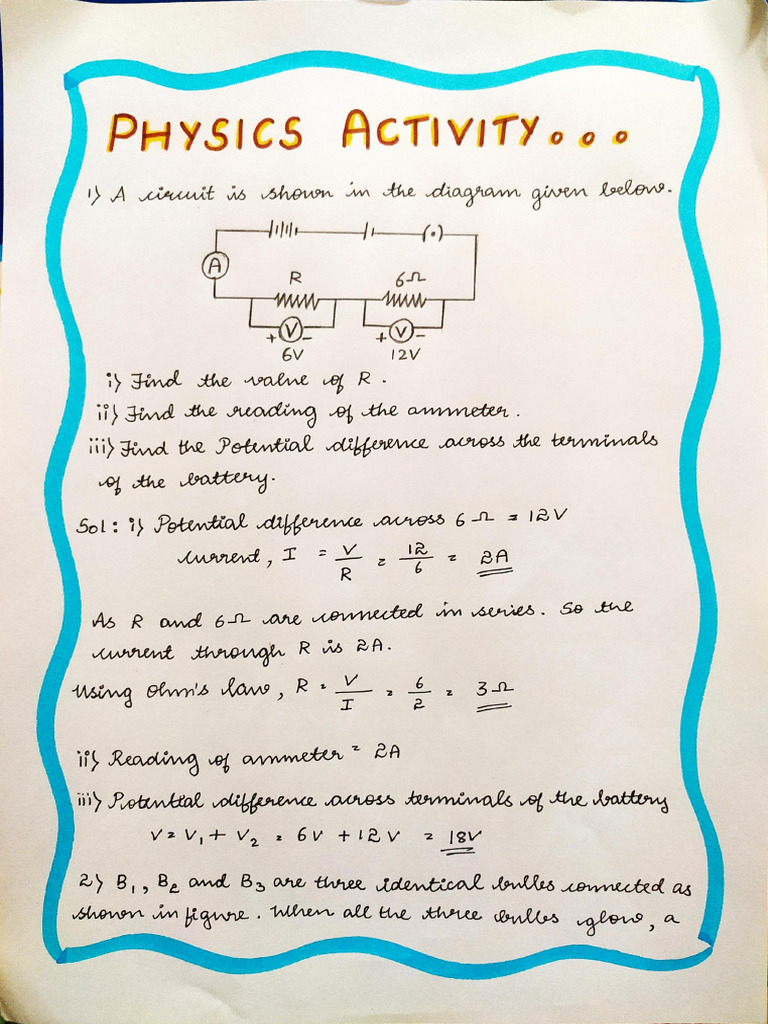 PHYSICS ACTIVITY...
1) A circuit is shown in the diagram given below.
A
R 6Ω
+ V - + V -
6V 12V
i) Find the value of R.
ii) Find the reading of the ammeter.
iii) Find the Potential difference across the terminals
of the battery.
Sol: i) Potential difference across 6Ω = 12V
current, I = V/R = 12/6 = 2A
As R and 6Ω are connected in series. So the
current through R is 2A.
Using Ohm's law, R = V/I = 6/2 = 3Ω
ii) Reading of ammeter = 2A
iii) Potential difference across terminals of the battery
V = V₁ + V₂ = 6V + 12V = 18V
2) B₁, B₂ and B₃ are three identical bulbs connected as
shown in figure. When all the three bulbs glow, a